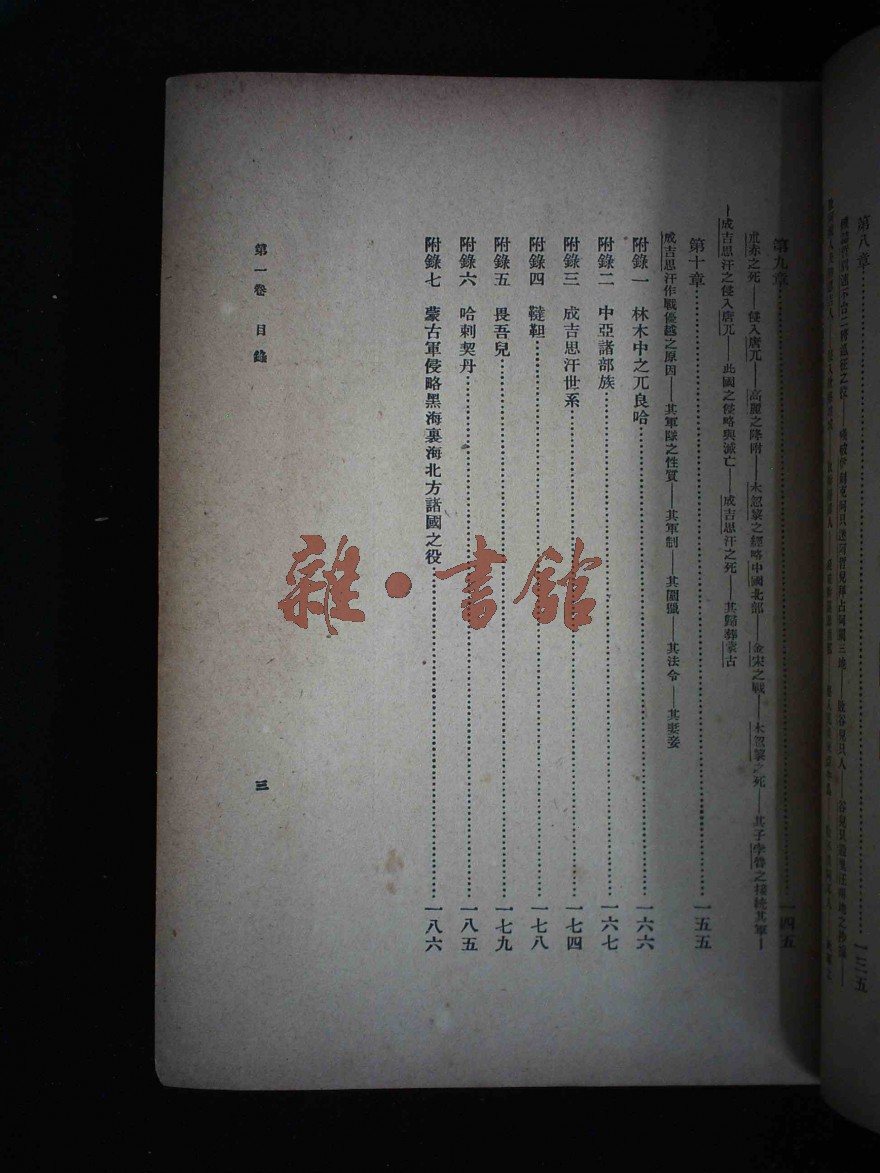 第八章……一三五
第九章……一四五
朮赤之死——侵入唐兀——高麗之降附——木忽黎之經略中國北部——金宋之戰——木忽黎之死——其子孛魯之接統其軍—
—成吉思汗之侵入唐兀——此國之侵略與滅亡——成吉思汗之死——其歸葬蒙古
第十章……一五五
成吉思汗作戰優越之原因——其軍隊之性質——其軍制——其圍獵——其法令——其妻妾
附錄一 林木中之兀良哈……一六六
附錄二 中亞諸部族……一六七
附錄三 成吉思汗世系……一七四
附錄四 韃靼……一七八
附錄五 畏吾兒……一七九
附錄六 哈剌契丹……一八五
附錄七 蒙古軍侵略黑海裏海北方諸國之役……一八六
第一卷 目錄
三
雜·書館